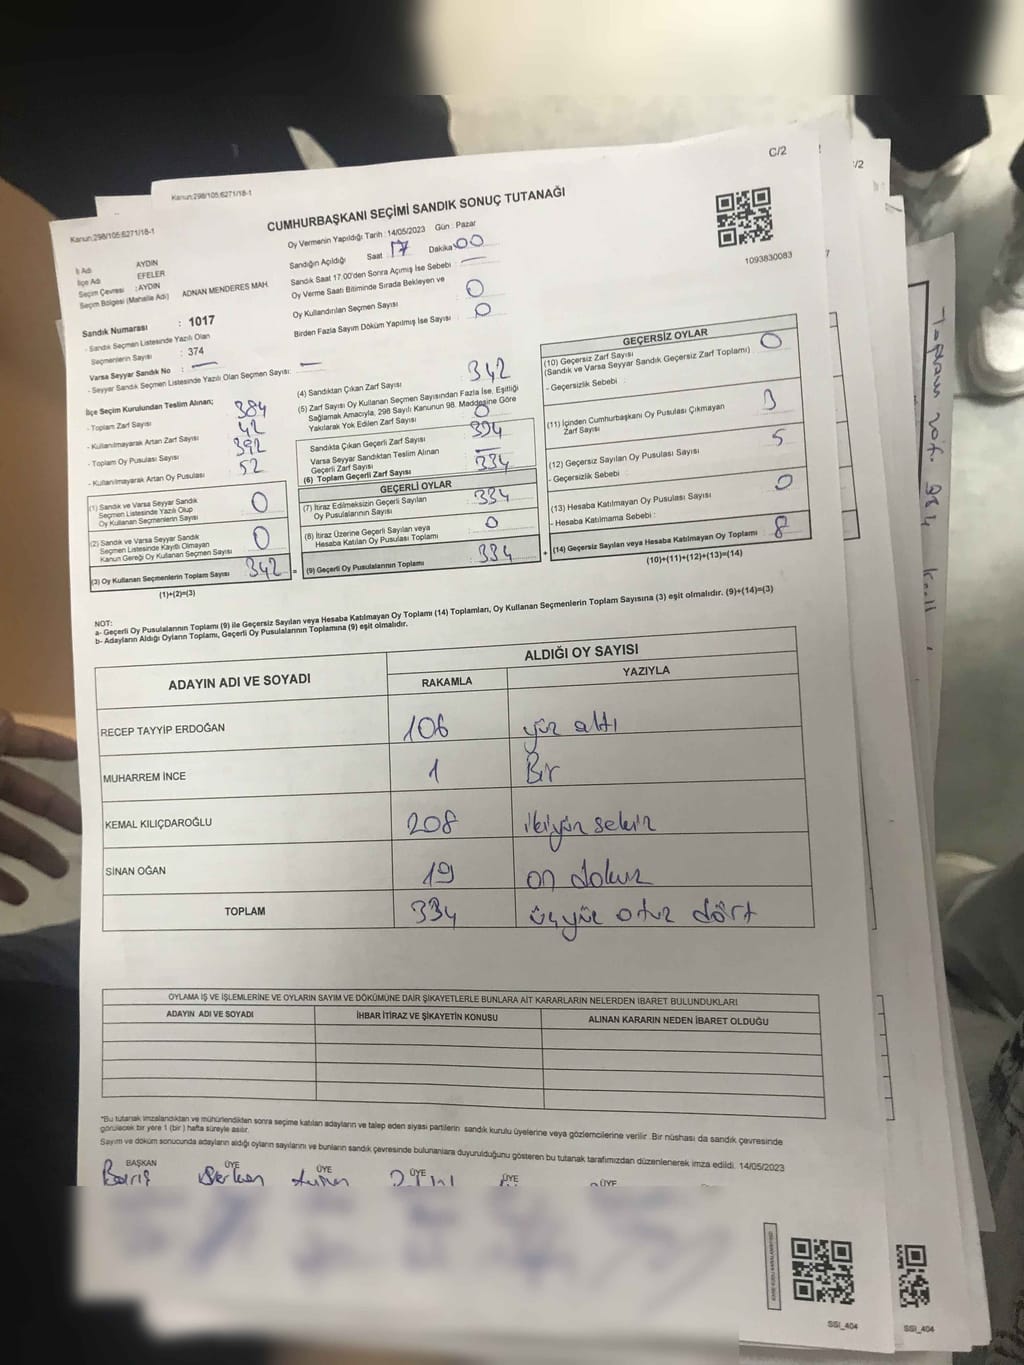 C/2
/2
Kanun:298/105;6271/18-1
Kanun:298/105;6271/18-1
CUMHURBAŞKANI SEÇİMİ SANDIK SONUÇ TUTANAĞI
Oy Vermenin Yapıldığı Tarih : 14/05/2023 Gün : Pazar
1093830083
İl Adı : AYDIN
İlçe Adı : EFELER
Seçim Çevresi : AYDIN
Seçim Bölgesi (Mahalle Adı) ADNAN MENDERES MAH.
Sandığın Açıldığı Saat 17 Dakika: 00
Sandık Saat 17.00'den Sonra Açımış İse Sebebi : —
Oy Verme Saati Bitiminde Sırada Bekleyen ve
Oy Kullandırılan Seçmen Sayısı : 0
Birden Fazla Sayım Döküm Yapılmış İse Sayısı : 0
Sandık Numarası : 1017
- Sandık Seçmen Listesinde Yazılı Olan
Seçmenlerin Sayısı : 374
Varsa Seyyar Sandık No : —
- Seyyar Sandık Seçmen Listesinde Yazılı Olan Seçmen Sayısı: —
İlçe Seçim Kurulundan Teslim Alınan;
- Toplam Zarf Sayısı 384
- Kullanılmayarak Artan Zarf Sayısı 42
- Toplam Oy Pusulası Sayısı 392
- Kullanılmayarak Artan Oy Pusulası 52
(1) Sandık ve Varsa Seyyar Sandık
Seçmen Listesinde Yazılı Olup
Oy Kullanan Seçmenlerin Sayısı 0
(2) Sandık ve Varsa Seyyar Sandık
Seçmen Listesinde Kayıtlı Olmayan
Kanun Gereği Oy Kullanan Seçmen Sayısı 0
(3) Oy Kullanan Seçmenlerin Toplam Sayısı 342 =
(1)+(2)=(3)
(4) Sandıktan Çıkan Zarf Sayısı 342
(5) Zarf Sayısı Oy Kullanan Seçmen Sayısından Fazla İse, Eşitliği
Sağlamak Amacıyla, 298 Sayılı Kanunun 98. Maddesine Göre
Yakılarak Yok Edilen Zarf Sayısı : 0
Sandıkta Çıkan Geçerli Zarf Sayısı : 334
Varsa Seyyar Sandıktan Teslim Alınan
Geçerli Zarf Sayısı : —
(6) Toplam Geçerli Zarf Sayısı : 334
GEÇERLİ OYLAR
(7) İtiraz Edilmeksizin Geçerli Sayılan
Oy Pusulalarının Sayısı : 334
(8) İtiraz Üzerine Geçerli Sayılan veya
Hesaba Katılan Oy Pusulası Toplamı : 0
(9) Geçerli Oy Pusulalarının Toplamı : 334 +
GEÇERSİZ OYLAR
(10) Geçersiz Zarf Sayısı
(Sandık ve Varsa Seyyar Sandık Geçersiz Zarf Toplamı) : 0
- Geçersizlik Sebebi :
(11) İçinden Cumhurbaşkanı Oy Pusulası Çıkmayan
Zarf Sayısı : 3
(12) Geçersiz Sayılan Oy Pusulası Sayısı : 5
- Geçersizlik Sebebi :
(13) Hesaba Katılmayan Oy Pusulası Sayısı : 0
- Hesaba Katılmama Sebebi :
(14) Geçersiz Sayılan veya Hesaba Katılmayan Oy Toplamı : 8
(10)+(11)+(12)+(13)=(14)
NOT:
a- Geçerli Oy Pusulalarının Toplamı (9) ile Geçersiz Sayılan veya Hesaba Katılmayan Oy Toplamı (14) Toplamları, Oy Kullanan Seçmenlerin Toplam Sayısına (3) eşit olmalıdır. (9)+(14)=(3)
b- Adayların Aldığı Oyların Toplamı, Geçerli Oy Pusulalarının Toplamına (9) eşit olmalıdır.
ADAYIN ADI VE SOYADI ALDIĞI OY SAYISI
RAKAMLA YAZIYLA
RECEP TAYYİP ERDOĞAN 106 yüz altı
MUHARREM İNCE 1 Bir
KEMAL KILIÇDAROĞLU 208 ikiyüz sekiz
SİNAN OĞAN 19 on dokuz
TOPLAM 334 üçyüz otuz dört
OYLAMA İŞ VE İŞLEMLERİNE VE OYLARIN SAYIM VE DÖKÜMÜNE DAİR ŞİKAYETLERLE BUNLARA AİT KARARLARIN NELERDEN İBARET BULUNDUKLARI
ADAYIN ADI VE SOYADI İHBAR İTİRAZ VE ŞİKAYETİN KONUSU ALINAN KARARIN NEDEN İBARET OLDUĞU
*Bu tutanak imzalandıktan ve mühürlendikten sonra seçime katılan adayların ve talep eden siyasi partilerin sandık kurulu üyelerine veya gözlemcilerine verilir .Bir nüshası da sandık çevresinde
görülecek bir yere 1 (bir ) hafta süreyle asılır.
Sayım ve döküm sonucunda adayların aldığı oyların sayılarını ve bunların sandık çevresinde bulunanlara duyurulduğunu gösteren bu tutanak tarafımızdan düzenlenerek imza edildi. 14/05/2023
BAŞKAN ÜYE ÜYE ÜYE ÜYE ÜYE
Barış Serkan
SSI_404
SSI_404